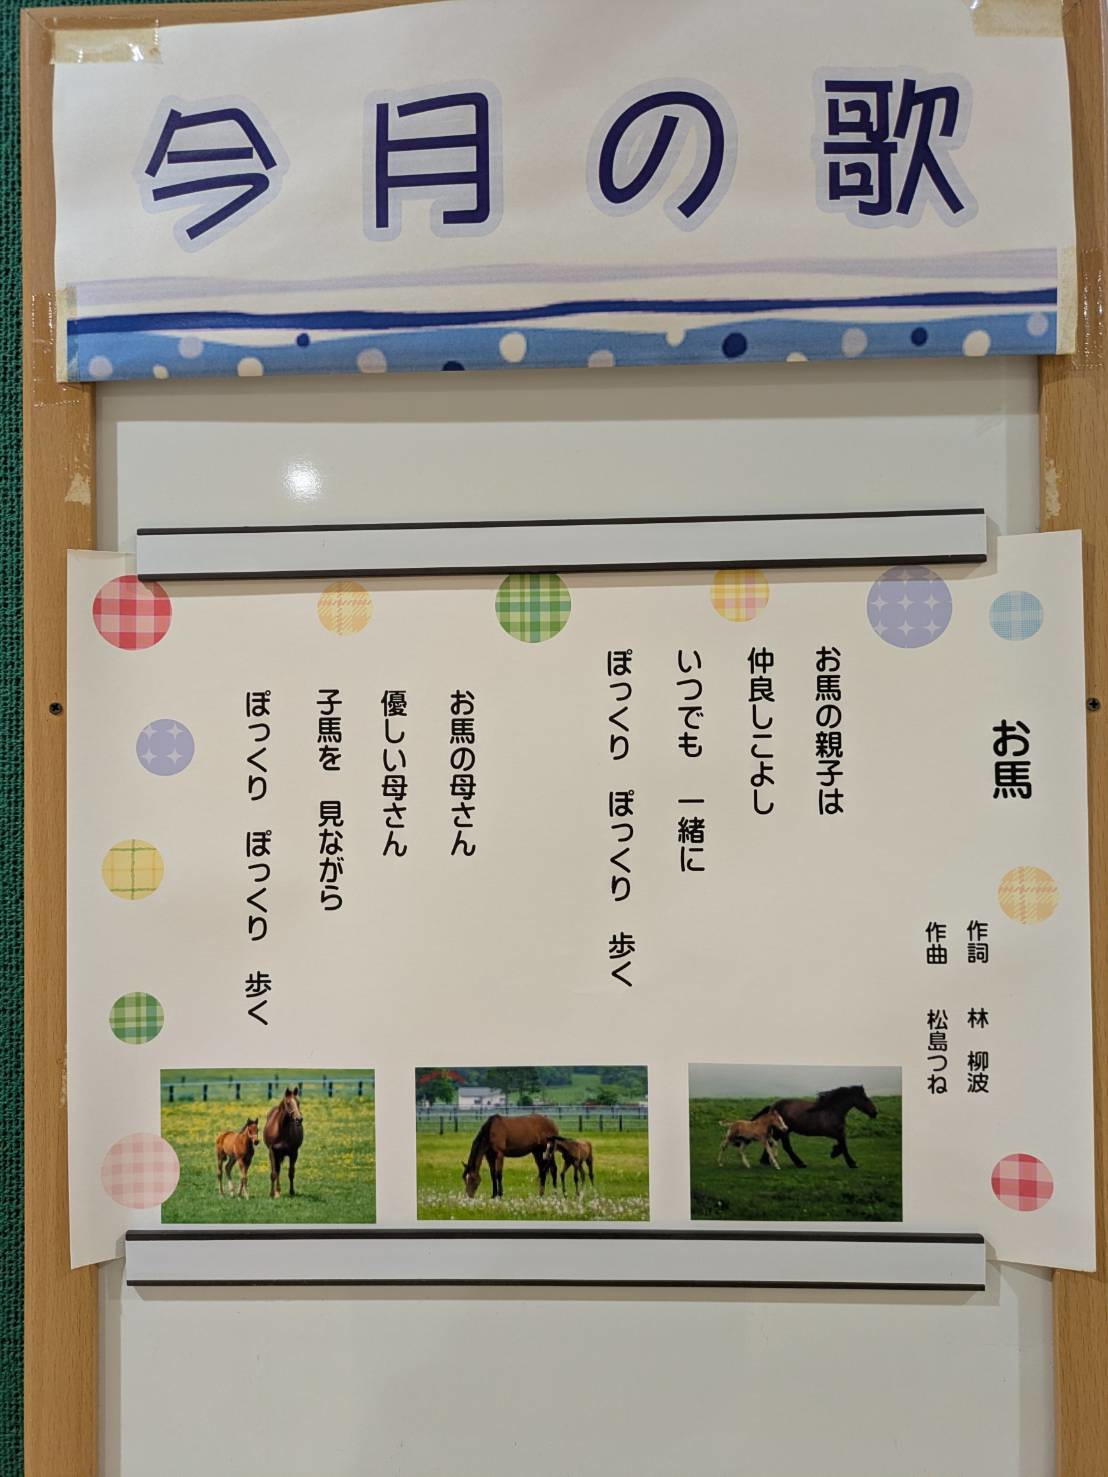 今月の歌
お馬
作詞　林　柳波
作曲　松島つね
お馬の親子は
仲良しこよし
いつでも　一緒に
ぽっくり　ぽっくり　歩く
お馬の母さん
優しい母さん
子馬を　見ながら
ぽっくり　ぽっくり　歩く